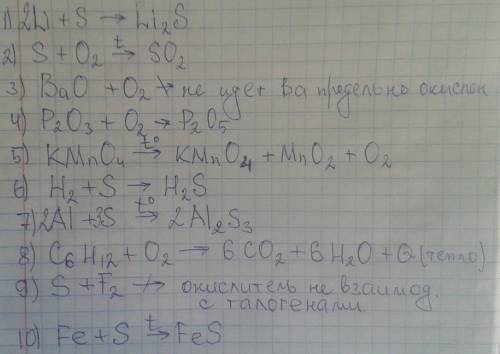 1) 2Li + S → Li₂S
2) S + O₂ →ᵗ SO₂
3) BaO + O₂ ↛ не идет Ba предельно окислен
4) P₂O₃ + O₂ → P₂O₅
5) KMnO₄ →ᵗ° KMnO₄ + MnO₂ + O₂
6) H₂ + S → H₂S
7) 2Al + 3S →ᵗ° 2Al₂S₃
8) C₆H₁₂ + O₂ → 6CO₂ + 6H₂O + Q (тепло)
9) S + F₂ ↛ окислитель не взаимод.
с галогенами
10) Fe + S →ᵗ FeS